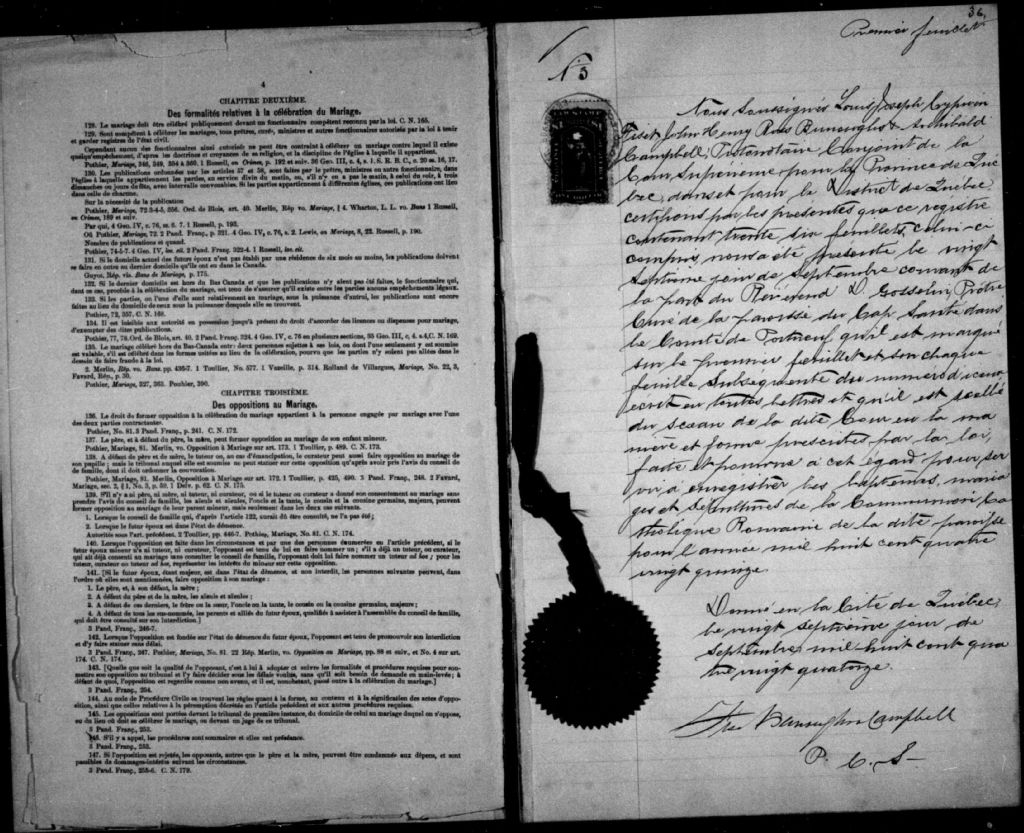 4
CHAPITRE DEUXIÈME.
Des formalités relatives à la célébration du Mariage.
128. Le mariage doit être célébré publiquement devant un fonctionnaire compétent reconnu par la loi. C. N. 165.
129. Sont compétent à célébrer les mariages, tous prêtres, curés, ministres et autres fonctionnaires autorisés par la loi à tenir
et garder registres de l'état civil.
Cependant aucun des fonctionnaires ainsi autorisés ne peut être contraint à célébrer un mariage contre lequel il existe
quelqu'empêchement, d'après les doctrines et croyances de sa religion, et la discipline de l'Église à laquelle il appartient.
Pothier, Mariage, 346, 349, 354 à 360. 1 Russell, on Crimes, p. 192 et suiv. 36 Geo. III, c. 4, s. 1. S. R. B. C., c. 20 ss. 16, 17.
130. Les publications ordonnées par les articles 57 et 58, sont faites par le prêtre, ministre ou autre fonctionnaire, dans
l'église à laquelle appartiennent les parties, au service divin du matin, ou, s'il n'y en a pas le matin, à celui du soir, à trois
dimanches ou jours de fêtes, avec intervalle convenables. Si les parties appartiennent à différentes églises, ces publications ont lieu
dans celle de charme.
Sur la nécessité de la publication
Pothier, Mariage, 72 3-4-5, 356. Ord. de Blois, art. 40. Merlin, Rép vo. Mariage, § 4. Wharton, L. L. vo. Bans 1 Russell,
on Crimes, 189 et suiv.
Par qui, 4 Geo. IV, c. 76, ss. 6. 7. 1 Russell, p. 193.
Où Pothier, Mariage, 72. 2 Pand. Franç., p. 321. 4 Geo. IV, c. 76, s. 2. Lewis, on Mariage, 8, 22. Russell, p. 190.
Nombre de publications et quand.
Pothier, 74-5-7. 4 Geo. IV, loc. cit. 2 Pand. Franç. 322-4. 1 Russell, loc. cit.
131. Si le domicile actuel des futurs époux n'est pas établi par une résidence de six mois au moins, les publications doivent
se faire en outre au dernier domicile qu'ils ont eu dans le Canada.
Guyot, Rép. vis. Bans de Mariage, p. 175.
132. Si le dernier domicile est hors du Bas Canada et que les publications n'y aient pas été faites, le fonctionnaire qui,
dans ce cas, procède à la célébration du mariage, est tenu de s'assurer qu'il existe entre les parties aucuns empêchements légaux.
133. Si les parties, ou l'une d'elles sont relativement au mariage, sous la puissance d'autrui, les publications sont encore
faites au lieu du domicile de ceux sous la puissance desquels elle se trouvent.
Pothier, 72, 357. C. N. 168.
134. Il est loisible aux autorité en possession jusqu'à présent du droit d'accorder des licences ou dispenses pour mariage,
d'exempter des dites publications.
Pothier, 77, 78. Ord. de Blois, art. 40. 2 Pand Franç. 324. 4 Geo. IV, c. 76 en plusieurs sections, 36 Geo. III, c. 4. s.4, C. N. 169.
135. Le mariage célébré hors du Bas-Canada entre deux personnes sujettes à ses lois, ou dont l'une seulement y est soumise
est valable, s'il est célébré dans les formes usitées au lieu de la célébration, pourvu que les parties n'y soient pas allées dans le
dessein de faire fraude à la loi.
2 Merlin, Rép. vo. Bans. pp. 435-7. 1 Toullier, No. 577. 1 Vazeille, p. 314. Rolland de Villargues, Mariage, No. 22, 3,
Favard, Rép., p. 50.
Pothier, Mariage, 327, 363. Pouhier, 390.
CHAPITRE TROISIÈME.
Des oppositions au Mariage.
136. Le droit de former opposition à la célébration du mariage appartient à la personne engagée par mariage avec l'une
des deux parties contractantes.
Pothier, No. 81. 3 Pand Franç., p. 241. C. N. 172.
137. Le père, et à défaut du père, la mère, peut former opposition au mariage de son enfant mineur.
Pothier, Mariage, 81. Merlin, vo. Opposition à Mariage sur art. 173. 1 Toullier, p. 489. C. N. 173.
138. A défaut de père et de mère, le tuteur ou, au cas d'émancipation, le curateur peut aussi faire opposition au mariage de
son pupille; mais le tribunal auquel elle est soumise ne peut statuer sur cette opposition qu'après avoir pris l'avis du conseil de
famille, dont il doit ordonner la convocation.
Pothier, Mariage, 81. Merlin, Opposition à Mariage sur art. 172. 1 Toullier, p. 425, 490. 3 Pand. Franç., 248. 2 Favard,
Mariage, sec. 2, § 1, No. 3, p. 59. 1 Delv. p. 62. C. N. 175.
139. S'il n'y a ni père, ni mère, ni tuteur, ni curateur, ou si le tuteur ou curateur a donné son consentement au mariage sans
prendre l'avis du conseil de famille, les aïeuls et aïeules, l'oncle et la tante, le cousin et la cousine germains, majeurs, peuvent
former opposition au mariage de leur parent mineur, mais seulement dans les deux cas suivants.
1. Lorsque le conseil de famille qui, d'après l'article 122, aurait dû être consulté, ne l'a pas été;
2. Lorsque le futur époux est dans l'état de démence.
Autorités sous l'art. précédent. 2 Toullier, pp. 646-7. Pothier, Mariage, No. 81. C. N. 174.
140. Lorsque opposition est faite dans les circonstances et par une des personnes énumérées en l'article précédent, si le
futur époux mineur n'a ni tuteur, ni curateur, l'opposant est tenu de lui en faire nommer un; s'il a déjà un tuteur, ou curateur,
qui ait déjà consenti au mariage sans consulter le conseil de famille, l'opposant doit lui faire nommer un tuteur ad hoc; pour les
tuteur, curateur ou tuteur ad hoc, représenter les intérêts du mineur sur cette opposition.
141. [Si le futur époux, étant majeur, est dans l'état de démence, et non interdit, les personnes suivantes peuvent, dans
l'ordre où elles sont mentionnées, faire opposition à son mariage:
1. Le père, et, à son défaut, la mère;
2. A défaut de père et de la mère, les aïeuls et aïeules;
3. A défaut de ces derniers, le frère ou la sœur, l'oncle ou la tante, le cousin ou la cousine germains, majeurs;
4. A défaut de tous les sus-nommés, les parents et alliés du futur époux, qualifiés à assister à l'assemblée du conseil de famille,
qui doit être consulté sur son interdiction.]
3 Pand. Franç., 246-7.
142. Lorsque l'opposition est fondée sur l'état de démence du futur époux, l'opposant est tenu de promouvoir son interdiction
et d'y faire statuer sans délai.
3 Pand. Franç., 247. Pothier, Mariage, No. 81. 22 Rép. Merlin, vo. Opposition au Mariage, pp. 88 et suiv., et No. 4 sur art.
174. C. N. 174.
143. [Quelle que soit la qualité de l'opposant, c'est à lui à adopter et suivre les formalités et procédures requises pour soumettre
son opposition au tribunal et l'y faire décider sous les délais voulus, sans qu'il soit besoin de demande en main-levée; à
défaut de quoi, l'opposition est regardée comme non avenu, et il est, nonobstant, passé outre à la célébration du mariage.]
3 Pand. Franç., 254.
144. Au code de Procédure Civile se trouvent les règles quant à la forme, au contenu et à la signification des actes d'opposition,
ainsi que celles relatives à la péremption décrétée en l'article précédent et aux autres procédures requises.
145. Les oppositions sont portées devant le tribunal de première instance, du domicile de celui au mariage duquel on s'oppose,
ou du lieu où doit se célébrer le mariage, ou devant un juge de ce tribunal.
3 Pand. Franç. 253.
146. S'il y a appel, les procédures sont sommaires et elles ont préséance.
3 Pand. Franç., 253.
147. Si l'opposition est rejetée, les opposants, autres que le père et la mère, peuvent être condamnés aux dépens, et sont
passibles de dommages-intérêts suivant les circonstances.
3 Pand. Franç., 255-6. C. N. 179.
36.
Premier feuillet
Nous soussignés Louis Joseph Cyprien
Fiset, John Henry Ross Burroughs & Archibald
Campbell, Protonotaire Conjoint de la
Cour Supérieure pour la Province de Qué
bec, dans et pour le District de Québec
certifions par les présentes que ce registre
contenant trente six feuillets, celui-ci
compris, nous a été présenté le vingt
septième jour de Septembre courant de
la part du Révérend D. Gosselin, Prêtre
Curé de la paroisse du Cap Santé dans
le Comté de Portneuf qu'il est marqué
sur le premier feuillet et sur chaque
feuillet subséquent du numéro d'iceux,
écrit en toutes lettres et qu'il est scellé
du sceau de la dite Cour en la ma
nière et forme prescrites par la loi,
faite et pourvue à cet égard pour ser
vir à enregistrer les baptêmes, maria
ges et sépultures de la Communion Ca
tholique Romaine de la dite paroisse
pour l'année mil huit cent quatre
vingt quinze.
Donné en la Cité de Québec,
le vingt septième jour de
Septembre, mil huit cent qua
tre vingt quatorze.
Fiset Burroughs Campbell
P. C. S.